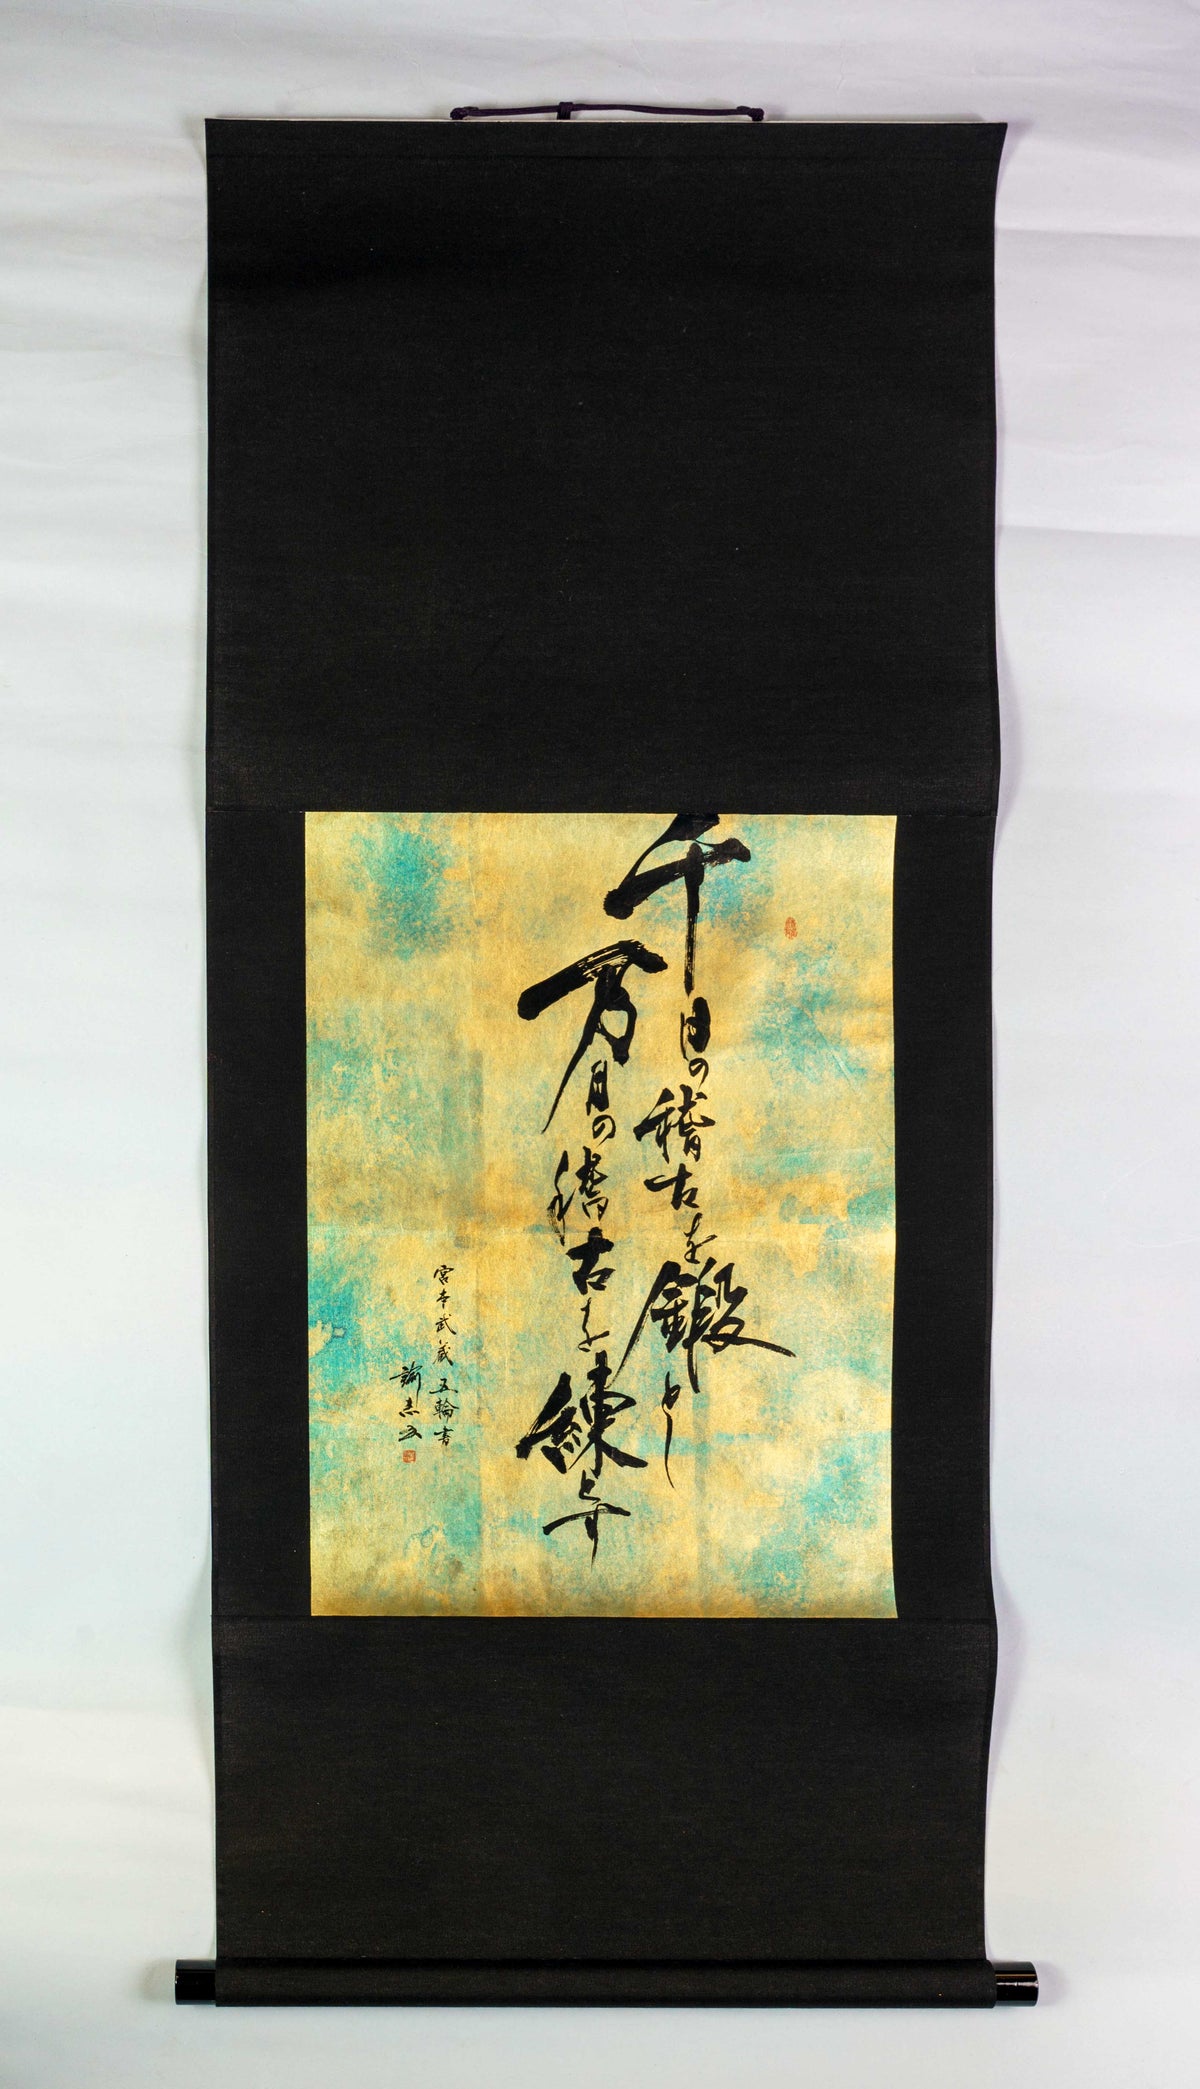 千日の稽古を鍛とし
万日の稽古を練とす
宮本武蔵 五輪書
諭志